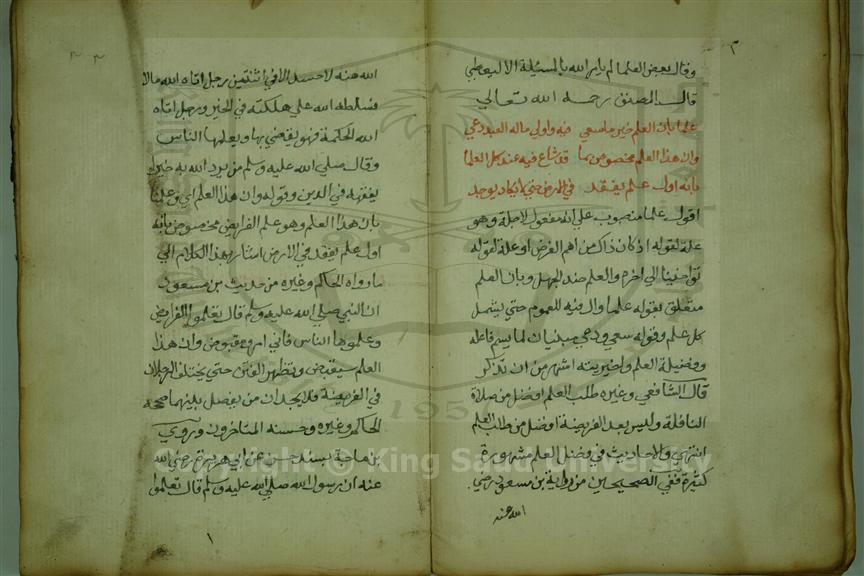 وقال بعض العلما لم يامر الله بالمسئلة الا ليعطي
قال المصنف رحمه الله تعالي
علما بان العلم خير ما سعي فيه واولي ماله العبد دعي
وان هذا العلم مخصوص بما قد شاع فيه عند كل العلما
بانه اول علم يفقد في الارض حتي لا يكاد يوجد
اقول علما منصوب علي انه مفعول لاجله وهو
علة لقوله اذ كان ذاك من اهم الغرض او علة لقوله
توخينا الي اخره والعلم ضد الجهل وبان العلم
متعلق بقوله علما وال فيه للعموم حتي يشمل
كل علم وقوله سعي ودعي مبنيان لما لم يسم فاعله
وفضيلة العلم واخيريته اشهر من ان تذكر
قال الشافعي وغيره طلب العلم افضل من صلاة
النافلة وليس بعد الفريضة افضل من طلب العلم
انتهي والاحاديث في فضل العلم مشهورة
كثيرة ففي الصحيحين من رواية بن مسعود رضي
الله عنه
الله عنه لا حسد الا في اثنتين رجل اتاه الله مالا
فسلطه الله علي هلكته في الخير ورجل اتاه
الله الحكمة فهو يقضي بها ويعلمها الناس
وقال صلي الله عليه وسلم من يرد الله به خيرا
يفقهه في الدين وقوله وان هذا العلم اي وعلما
بان هذا العلم وهو علم الفرايض مخصوص بانه
اول علم يفقد في الارض اشار بهذا الكلام الي
ما رواه الحاكم وغيره من حديث بن مسعود
ان النبي صلي الله عليه وسلم قال تعلموا الفرايض
وعلموها الناس فاني امرء مقبوض وان هذا
العلم سيقبض وتظهر الفتن حتي يختلف الرجلان
في الفريضة فلا يجدان من يفصل بينهما صححه
الحاكم وغيره وحسنه المتاخرون وروي
بن ماجة بسند حسن عن ابي هريرة رضي الله
عنه ان رسول الله صلي الله عليه وسلم قال تعلموا
1957
Copyright © King Saud University